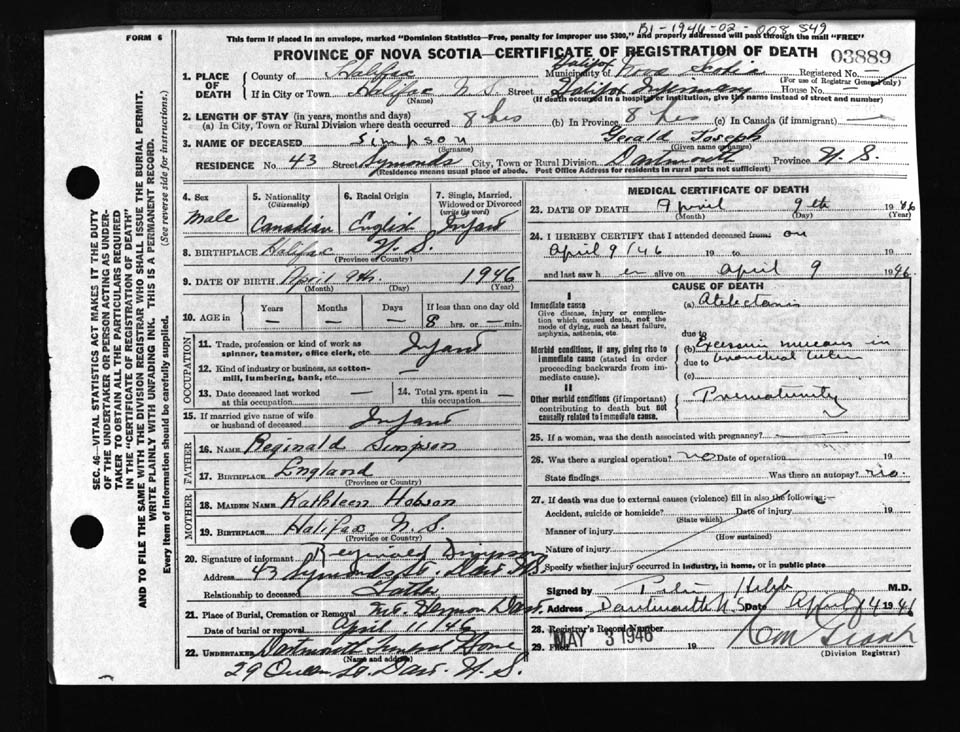 B1-1946-02-008549
FORM 6
This form if placed in an envelope, marked "Dominion Statistics—Free, penalty for improper use $300," and properly addressed will pass through the mail "FREE"
PROVINCE OF NOVA SCOTIA—CERTIFICATE OF REGISTRATION OF DEATH
03889
1. PLACE OF DEATH
County of Halifax Municipality of Halifax Nova Scotia Registered No. —
(For use of Registrar General only)
If in City or Town Halifax N S Street Halifax Infirmary House No. —
(Name) (If death occurred in a hospital or institution, give the name instead of street and number)
2. LENGTH OF STAY (in years, months and days)
(a) In City, Town or Rural Division where death occurred 8 hrs (b) In Province 8 hrs (c) In Canada (if immigrant) —
3. NAME OF DECEASED Simpson Gerald Joseph
(Surname) (Given name or names)
RESIDENCE No. 43 Street Symonds City, Town or Rural Division Dartmouth Province N. S.
(Residence means usual place of abode. Post Office Address for residents in rural parts not sufficient)
4. Sex
Male
5. Nationality
(Citizenship)
Canadian
6. Racial Origin
English
7. Single, Married, Widowed or Divorced
(write the word)
Infant
8. BIRTHPLACE Halifax N. S.
(Province or Country)
9. DATE OF BIRTH April 9th 1946
(Month) (Day) (Year)
10. AGE in Years — Months — Days — If less than one day old
8 hrs. or — min.
OCCUPATION
11. Trade, profession or kind of work as spinner, teamster, office clerk, etc. Infant
12. Kind of industry or business, as cotton-mill, lumbering, bank, etc. —
13. Date deceased last worked at this occupation —
14. Total yrs. spent in this occupation —
15. If married give name of wife or husband of deceased Infant
FATHER
16. NAME Reginald Simpson
17. BIRTHPLACE England
(Province or Country)
MOTHER
18. MAIDEN NAME Kathleen Hobson
19. BIRTHPLACE Halifax N. S.
(Province or Country)
20. Signature of informant Reginald Simpson
Address 43 Symonds St. Dart NS
Relationship to deceased Father
21. Place of Burial, Cremation or Removal Mt. Hermon Dart.
Date of burial or removal April 11/46
22. UNDERTAKER Dartmouth Funeral Home
(Name and address)
29 Queen St. Dart. N. S.
MEDICAL CERTIFICATE OF DEATH
23. DATE OF DEATH April 9th 1946
(Month) (Day) (Year)
24. I HEREBY CERTIFY that I attended deceased from: on
April 9/46 19 to 19
and last saw h er alive on April 9 1946.
CAUSE OF DEATH
I
Immediate cause
Give disease, injury or complication which caused death, not the mode of dying, such as heart failure, asphyxia, asthenia, etc.
(a) Atelectasis
due to
Morbid conditions, if any, giving rise to immediate cause (stated in order proceeding backwards from immediate cause).
(b) Excessive mucous in
due to bronchial
(c)
II
Other morbid conditions (if important) contributing to death but not causally related to immediate cause.
Prematurity
25. If a woman, was the death associated with pregnancy?
26. Was there a surgical operation? no Date of operation 19
State findings Was there an autopsy? no.
27. If death was due to external causes (violence) fill in also the following:—
Accident, suicide or homicide? Date of injury 19
(State which)
Manner of injury
(How sustained)
Nature of injury
Specify whether injury occurred in industry, in home, or in public place
Signed by M.D.
Address Dartmouth N.S. Date April 1946
28. Registrar's Record Number
29. Filed MAY 3 1946 19
(Division Registrar)
SEC. 46—VITAL STATISTICS ACT MAKES IT THE DUTY
OF THE UNDERTAKER OR PERSON ACTING AS UNDER-
TAKER TO OBTAIN ALL THE PARTICULARS REQUIRED
IN THE "CERTIFICATE OF REGISTRATION OF DEATH"
AND TO FILE THE SAME WITH THE DIVISION REGISTRAR WHO SHALL ISSUE THE BURIAL PERMIT.
WRITE PLAINLY WITH UNFADING INK. THIS IS A PERMANENT RECORD.
Every item of information should be carefully supplied. (See reverse side for instructions.)